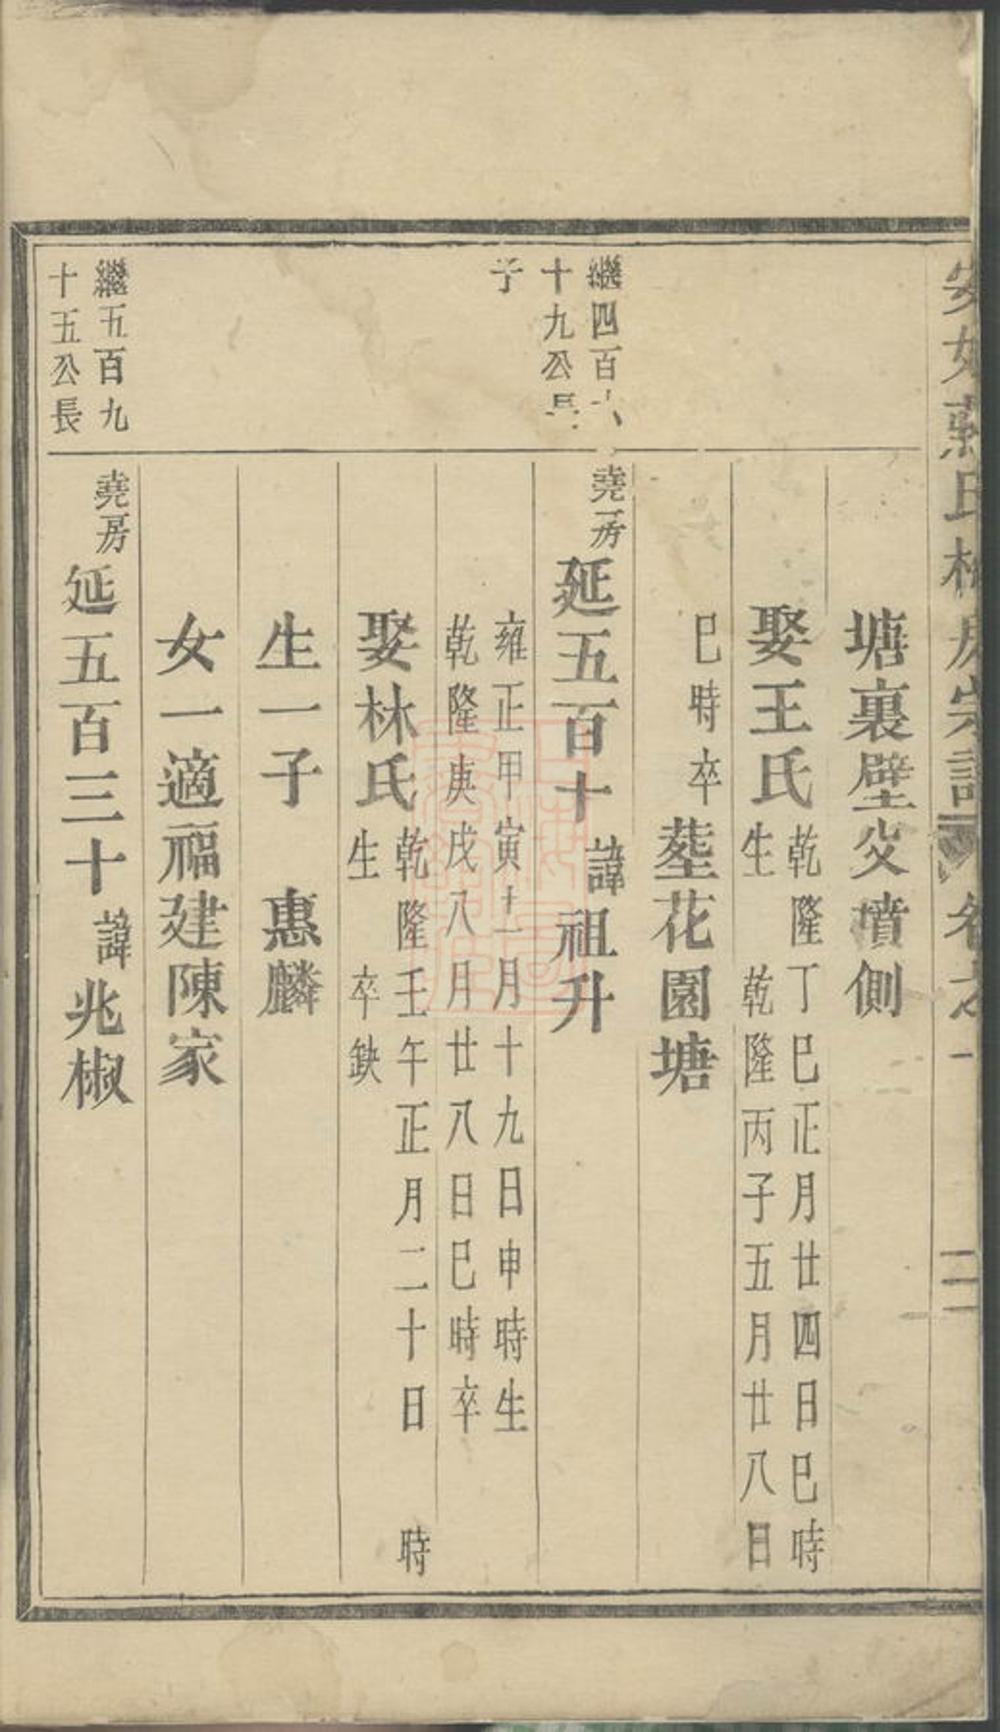 塘裏壁㓜墳側
娶王氏
乾隆丁巳正月廿四日巳時
生　乾隆丙子五月廿八日
巳時卒
塟花園塘
繼四百六
十九公長
子
堯房
延五百十
諱
祖升
雍正甲寅十一月十九日申時生
乾隆庚戌八月廿八日巳時卒
娶林氏
乾隆壬午正月二十日　時
生　卒缺
生一子　惠麟
女一適福建陳家
繼五百九
十五公長
堯房
延五百三十
諱
兆椒